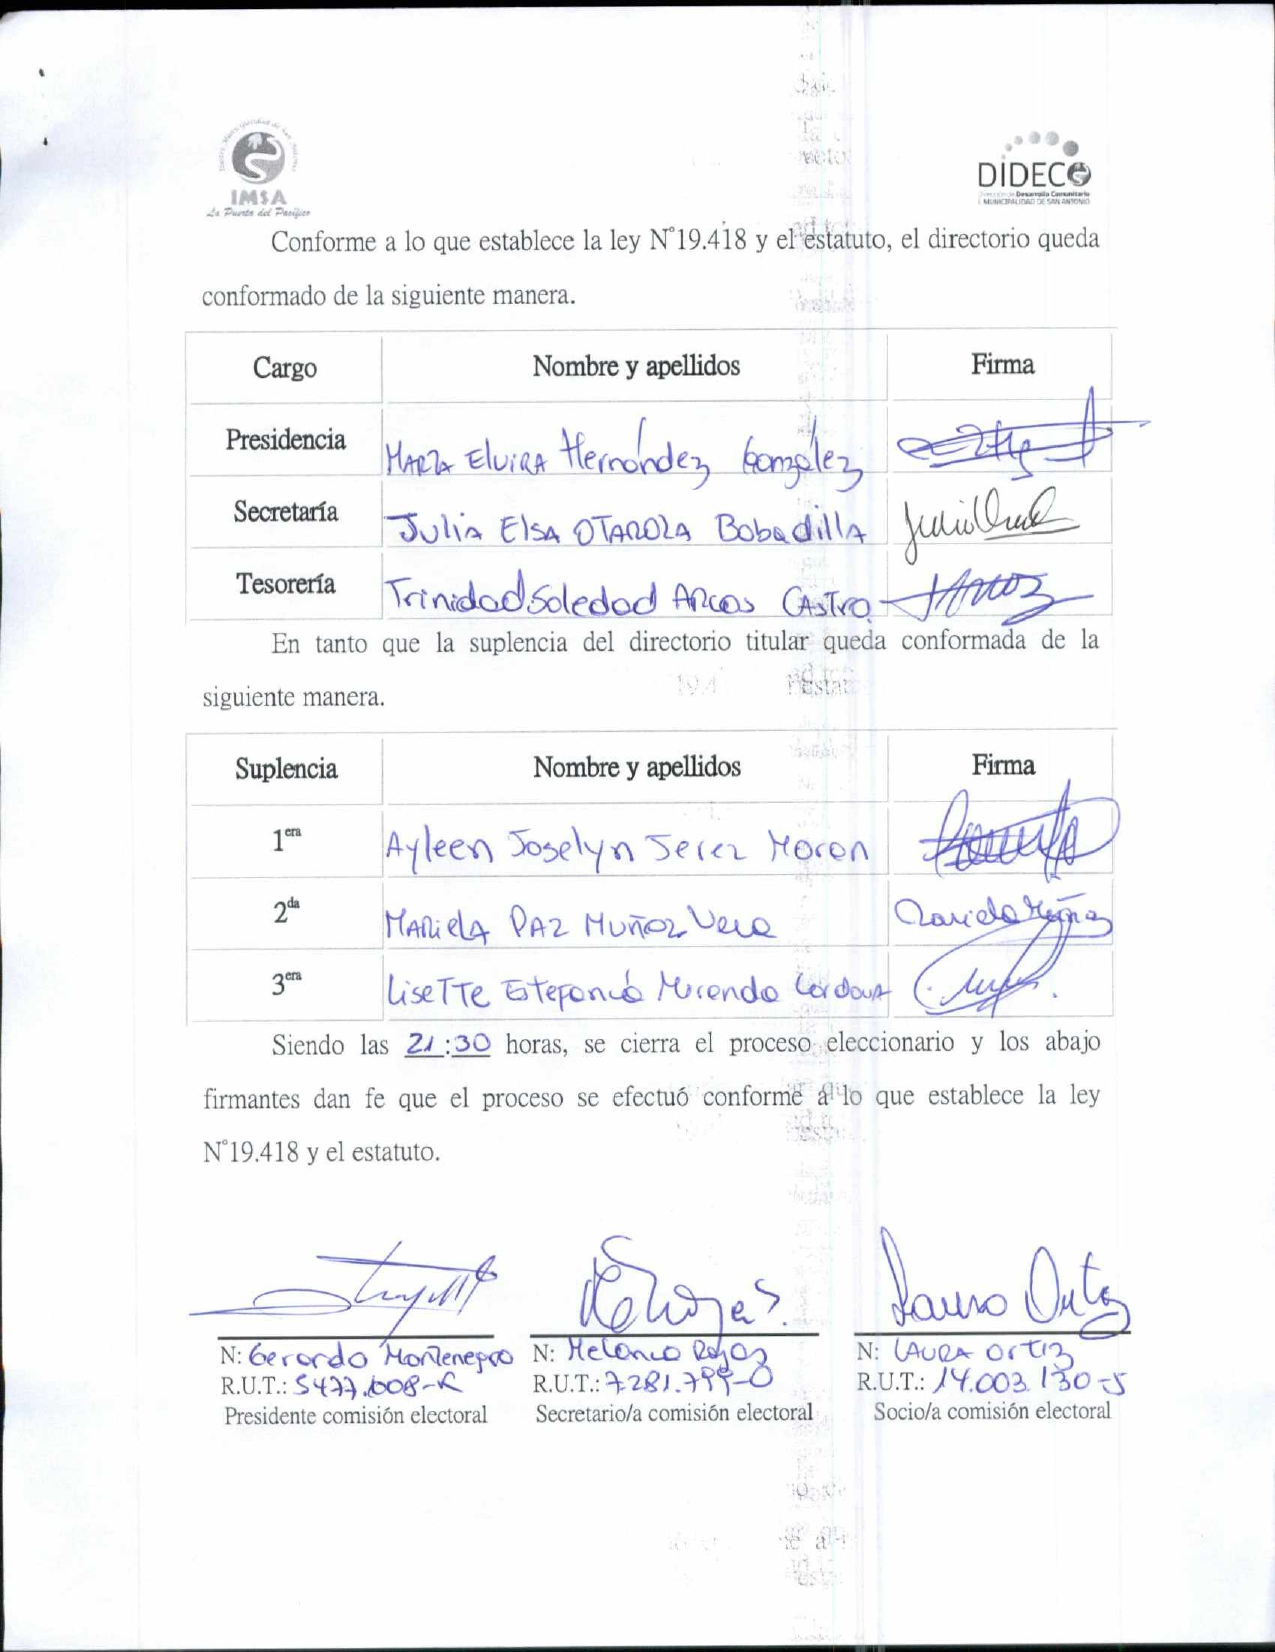 IMSA
La Puerta del Pacífico
DIDECO
Dirección de Desarrollo Comunitario
I. MUNICIPALIDAD DE SAN ANTONIO
Conforme a lo que establece la ley N°19.418 y el estatuto, el directorio queda
conformado de la siguiente manera.
Cargo Nombre y apellidos Firma
Presidencia MARIA ElviRA Hernández González
Secretaría Julia Elsa OTAROLA Bobadilla
Tesorería Trinidad Soledad Arcos Castro
En tanto que la suplencia del directorio titular queda conformada de la
siguiente manera.
Suplencia Nombre y apellidos Firma
1era Ayleen Joselyn Jerez Moron
2da MARIELA PAZ MUÑOZ Vera
3era LiseTTe Estefanía Miranda Cordova
Siendo las 21:30 horas, se cierra el proceso eleccionario y los abajo
firmantes dan fe que el proceso se efectuó conforme a lo que establece la ley
N°19.418 y el estatuto.
N: Gerardo Montenegro N: Melania Rojas N: LAURA ORTIZ
R.U.T.: 5477.008-K R.U.T.: 7.281.799-0 R.U.T.: 14.003.130-5
Presidente comisión electoral Secretario/a comisión electoral Socio/a comisión electoral